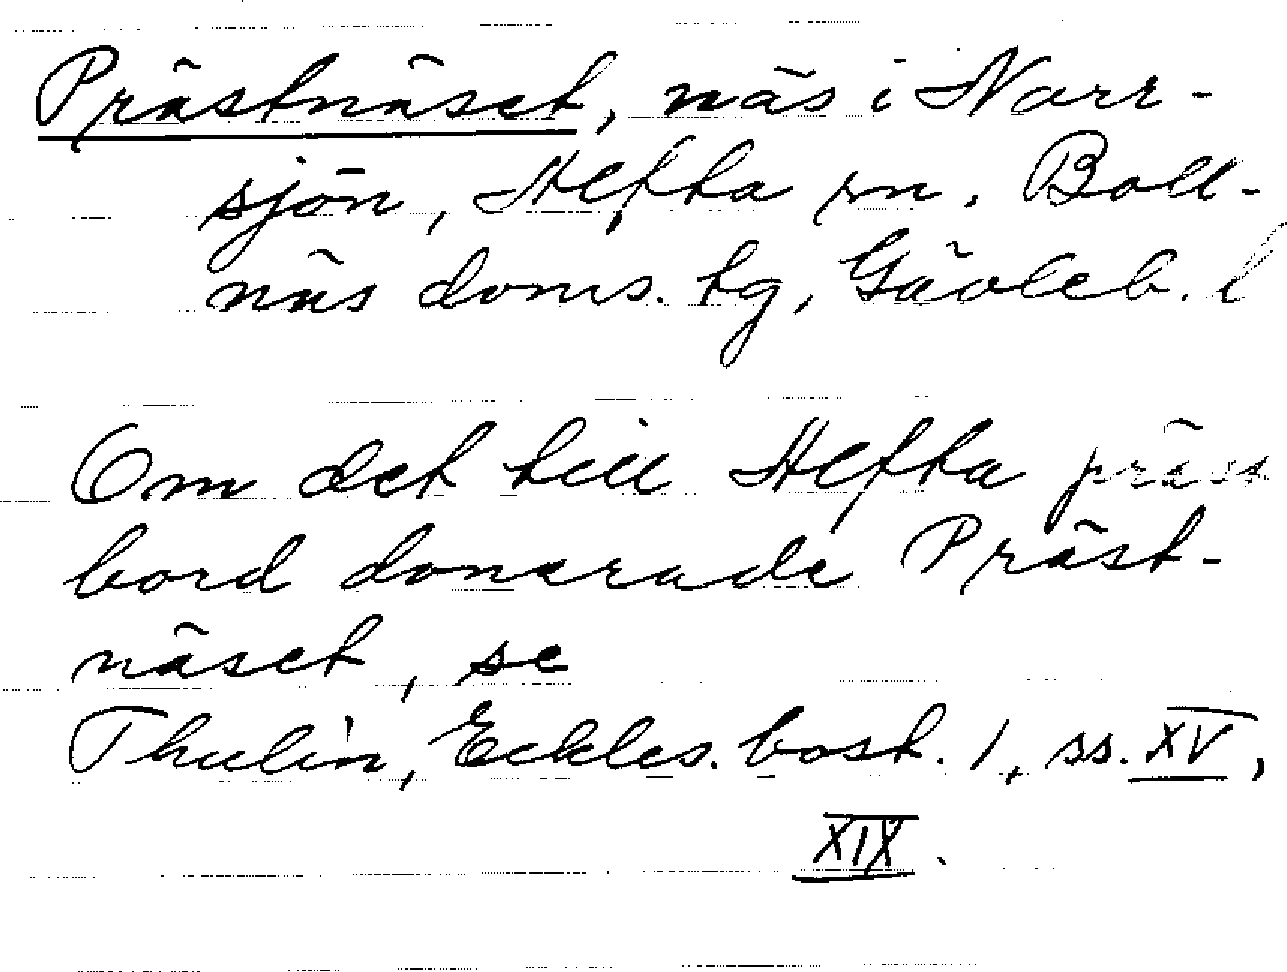 Prästnäset, näs i Norr-
sjön, Alfta sn. Boll-
näs doms. tg, Gävleb. l
Om det till Alfta präst
bord donerade Präst-
näset, se
Thulin, Eckles. bost. 1, ss. XV,
XIX.